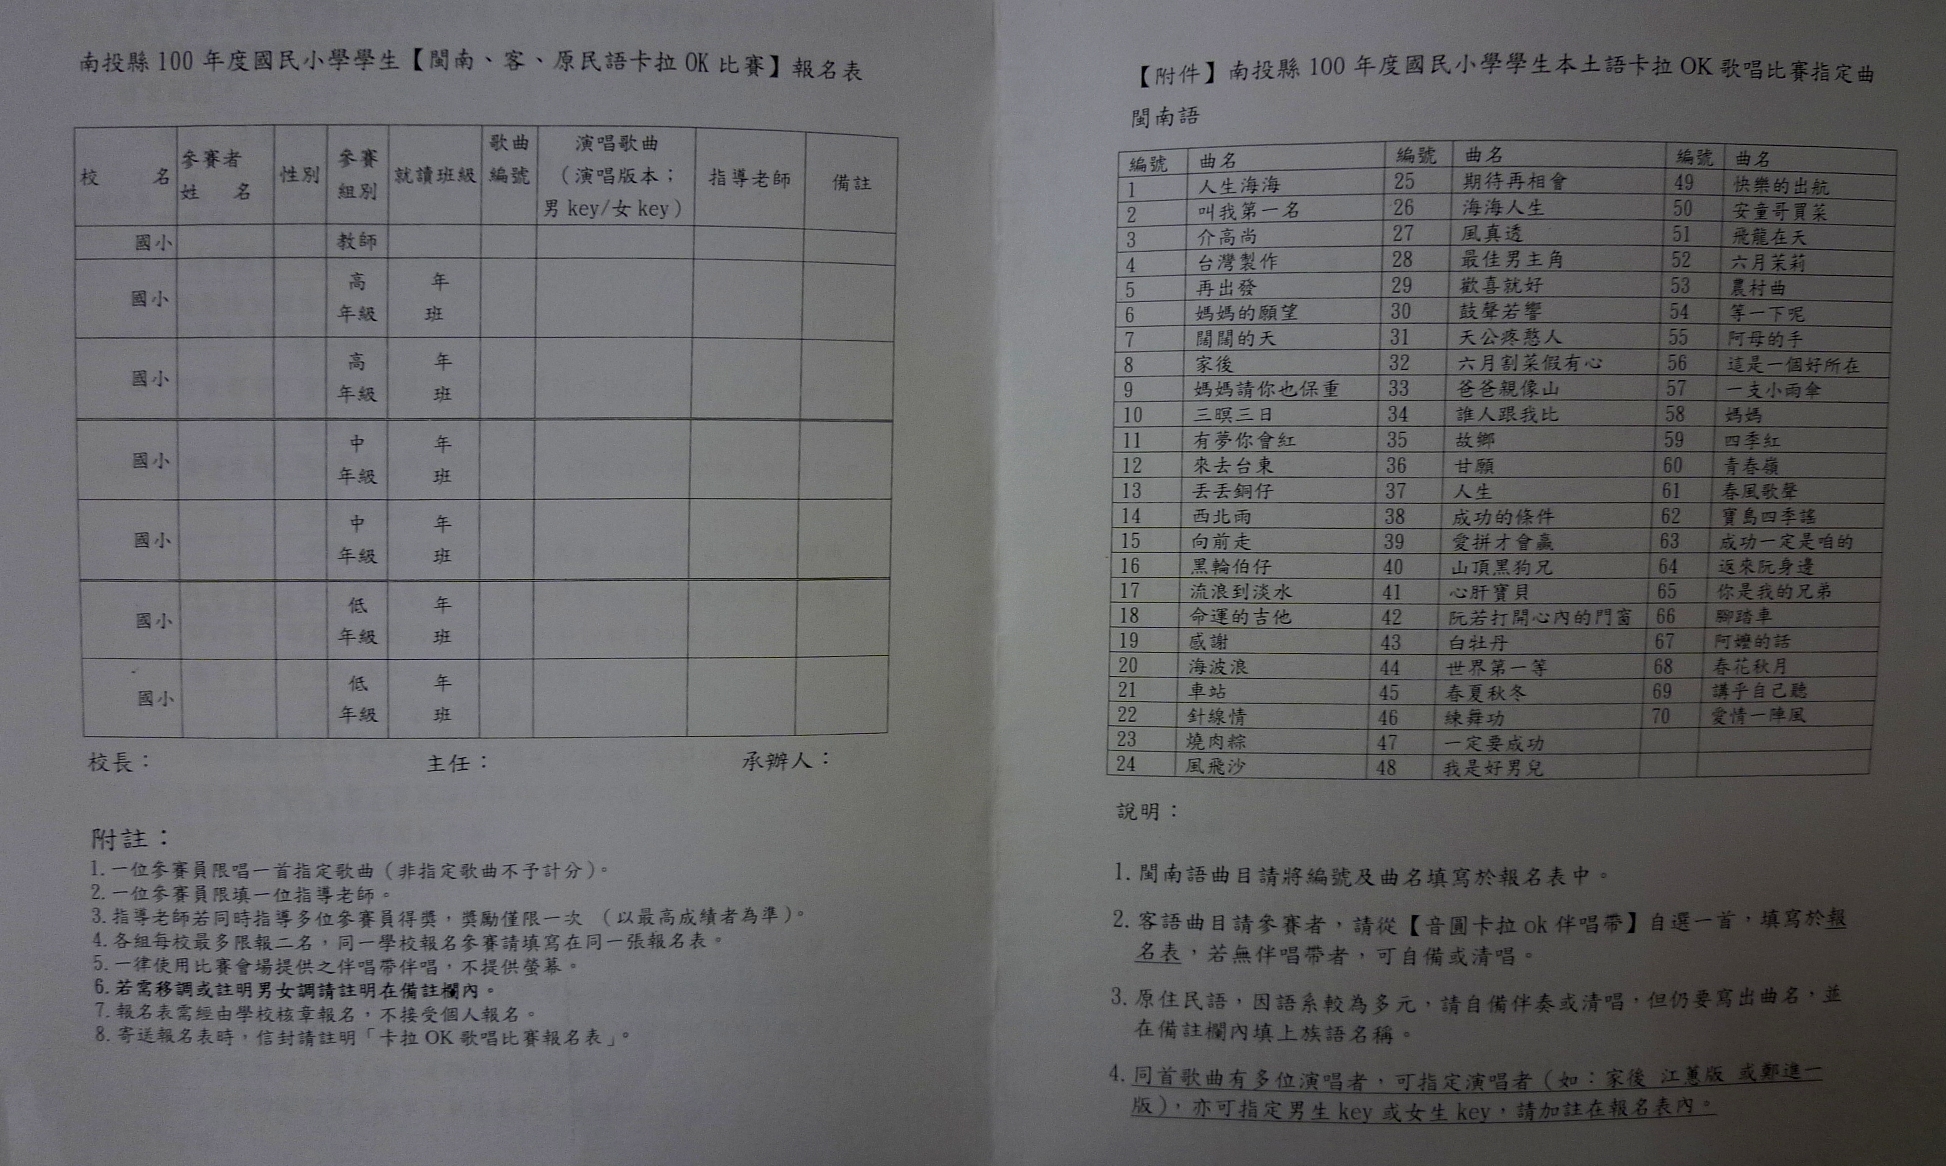 南投縣 100 年度國民小學學生【閩南、客、原民語卡拉 OK 比賽】報名表
校　名 參賽者姓　名 性別 參賽組別 就讀班級 歌曲編號 演唱歌曲（演唱版本；男 key/女 key） 指導老師 備註
國小 教師
國小 高年級 年班
國小 高年級 年班
國小 中年級 年班
國小 中年級 年班
國小 低年級 年班
國小 低年級 年班
校長： 主任： 承辦人：
附註：
1. 一位參賽員限唱一首指定歌曲（非指定歌曲不予計分）。
2. 一位參賽員限填一位指導老師。
3. 指導老師若同時指導多位參賽員得獎，獎勵僅限一次 （以最高成績者為準）。
4. 各組每校最多限報二名，同一學校報名參賽請填寫在同一張報名表。
5. 一律使用比賽會場提供之伴唱帶伴唱，不提供螢幕。
6. 若需移調或註明男女調請註明在備註欄內。
7. 報名表需經由學校核章報名，不接受個人報名。
8. 寄送報名表時，信封請註明「卡拉 OK 歌唱比賽報名表」。
【附件】南投縣 100 年度國民小學學生本土語卡拉 OK 歌唱比賽指定曲
閩南語
編號 曲名 編號 曲名 編號 曲名
1 人生海海 25 期待再相會 49 快樂的出航
2 叫我第一名 26 海海人生 50 安童哥買菜
3 介高尚 27 風真透 51 飛龍在天
4 台灣製作 28 最佳男主角 52 六月茉莉
5 再出發 29 歡喜就好 53 農村曲
6 媽媽的願望 30 鼓聲若響 54 等一下呢
7 闊闊的天 31 天公疼憨人 55 阿母的手
8 家後 32 六月割菜假有心 56 這是一個好所在
9 媽媽請你也保重 33 爸爸親像山 57 一支小雨傘
10 三暝三日 34 誰人跟我比 58 媽媽
11 有夢你會紅 35 故鄉 59 四季紅
12 來去台東 36 甘願 60 青春嶺
13 丟丟銅仔 37 人生 61 春風歌聲
14 西北雨 38 成功的條件 62 寶島四季謠
15 向前走 39 愛拼才會贏 63 成功一定是咱的
16 黑輪伯仔 40 山頂黑狗兄 64 返來阮身邊
17 流浪到淡水 41 心肝寶貝 65 你是我的兄弟
18 命運的吉他 42 阮若打開心內的門窗 66 腳踏車
19 感謝 43 白牡丹 67 阿嬤的話
20 海波浪 44 世界第一等 68 春花秋月
21 車站 45 春夏秋冬 69 講乎自己聽
22 針線情 46 練舞功 70 愛情一陣風
23 燒肉粽 47 一定要成功
24 風飛沙 48 我是好男兒
說明：
1. 閩南語曲目請將編號及曲名填寫於報名表中。
2. 客語曲目請參賽者，請從【音圓卡拉 ok 伴唱帶】自選一首，填寫於報
名表，若無伴唱帶者，可自備或清唱。
3. 原住民語，因語系較為多元，請自備伴奏或清唱，但仍要寫出曲名，並
在備註欄內填上族語名稱。
4. 同首歌曲有多位演唱者，可指定演唱者（如：家後 江蕙版 或鄭進一
版），亦可指定男生 key 或女生 key，請加註在報名表內。